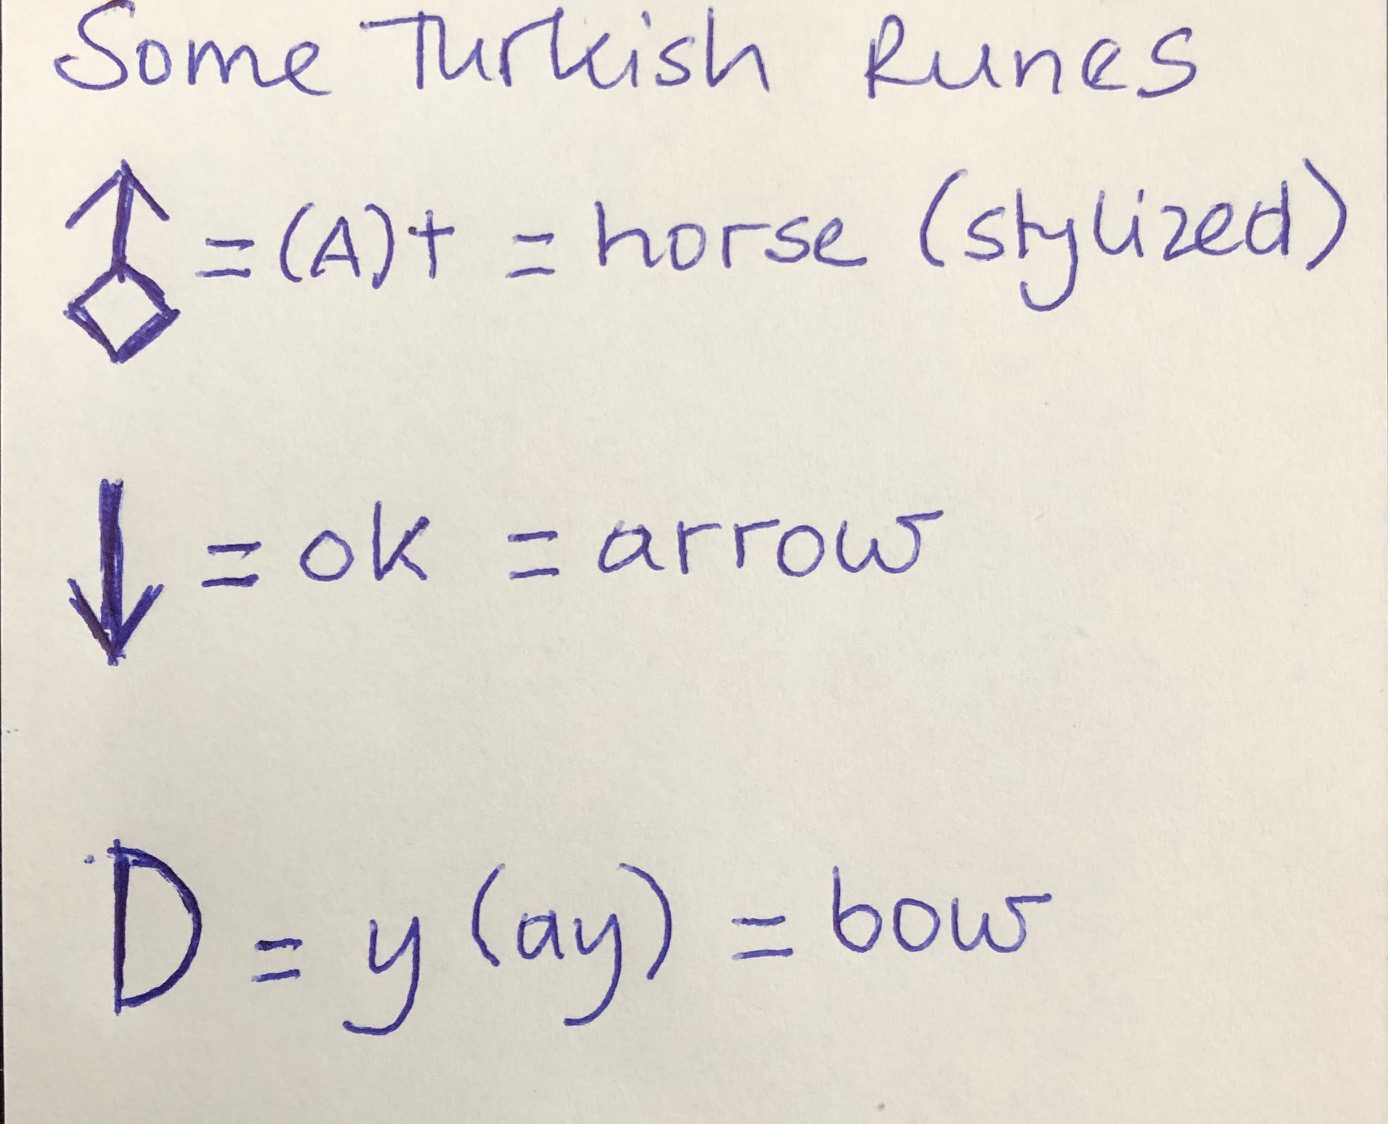 Some Turkish Runes
𐱃 = (A)t = horse (stylized)
↓ = ok = arrow
D = y (ay) = bow